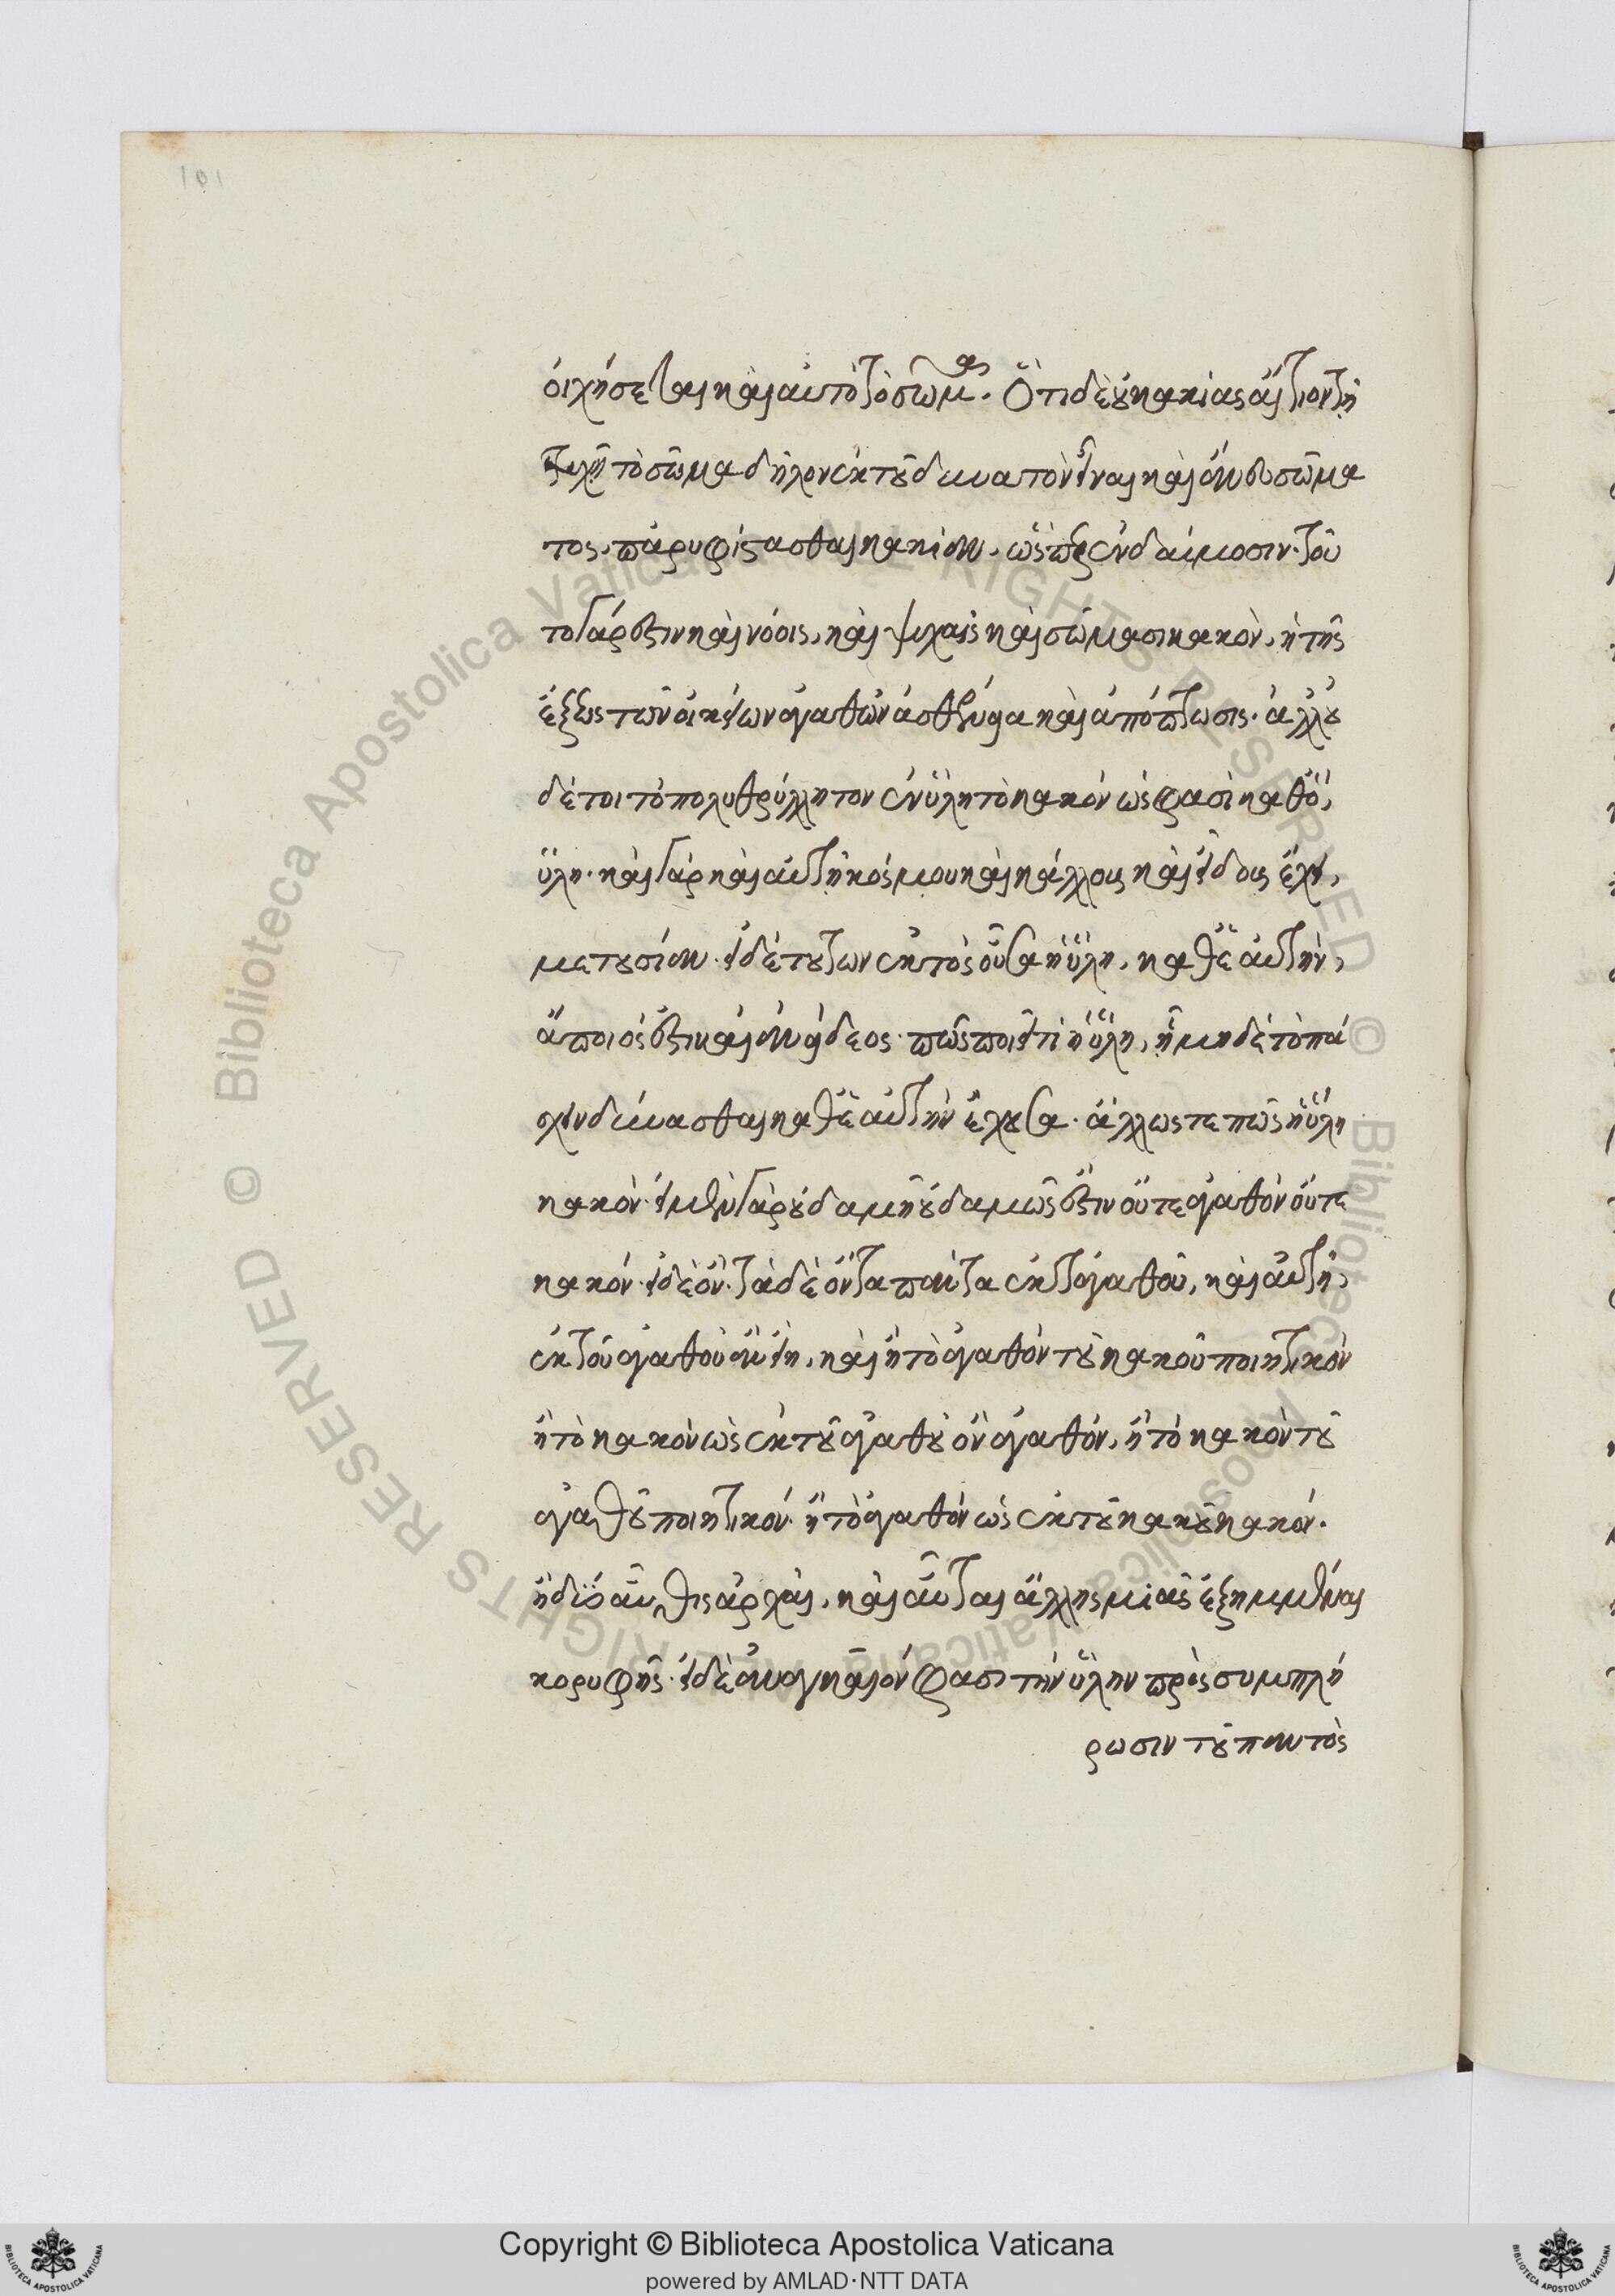 101
οἰχήσεται καὶ αὐτὸ τὸ σῶμα. Ὅτι δὲ οὐ κακίας αἴτιον τῇ
ψυχῇ τὸ σῶμα δῆλον ἐκ τοῦ δυνατὸν εἶναι καὶ ἄνευ σώμα
τος, παρυφίστασθαι κακίαν. ὥσπερ ἐν δαίμοσιν. τοῦ
το γάρ ἐστιν καὶ νόοις, καὶ ψυχαῖς καὶ σώμασι κακὸν, ἡ τῆς
ἕξεως τῶν οἰκείων ἀγαθῶν ἀσθένεια καὶ ἀπόπτωσις. ἀλλ' οὐ
δέ τοι τὸ πολυθρύλλητον ἐν ὕλῃ τὸ κακόν ὥς φασὶ καθὸ,
ὕλη. καὶ γὰρ καὶ αὐτὴ κόσμου καὶ κάλλους καὶ εἴδους ἔχει,
μετουσίαν. εἰ δὲ τούτων ἐκτὸς οὖσα ἡ ὕλη, καθ' ἑαυτὴν,
ἄποιός ἐστι καὶ ἀνείδεος. πῶς ποιεῖ τὶ ἡ ὕλη, ἡ μηδὲ τὸ πά
σχειν δύνασθαι καθ' ἑαυτὴν ἔχουσα. ἄλλως τε πῶς ἡ ὕλη
κακόν. εἰ μὲν γὰρ οὐδαμῆ οὐδαμῶς ἔστιν οὔτε ἀγαθὸν οὔτε
κακόν. εἰ δὲ ὄν. τὰ δὲ ὄντα πάντα ἐκ τἀγαθοῦ, καὶ αὐτὴ,
ἐκ τοῦ ἀγαθοῦ ἂν εἴη, καὶ ἢ τὸ ἀγαθὸν τοῦ κακοῦ ποιητικὸν
ἢ τὸ κακὸν ὡς ἐκ τοῦ ἀγαθοῦ ὂν ἀγαθόν, ἢ τὸ κακὸν τοῦ
ἀγαθοῦ ποιητικόν. ἢ τὸ ἀγαθόν ὡς ἐκ τοῦ κακοῦ κακόν.
ἢ δύο αὖθις ἀρχαὶ, καὶ αὗται ἄλλης μιᾶς ἐξημμέναι
κορυφῆς. εἰ δὲ ἀναγκαῖόν φασι τὴν ὕλην πρὸς συμπλή
ρωσιν τοῦ παντὸς
Copyright © Biblioteca Apostolica Vaticana
powered by AMLAD·NTT DATA